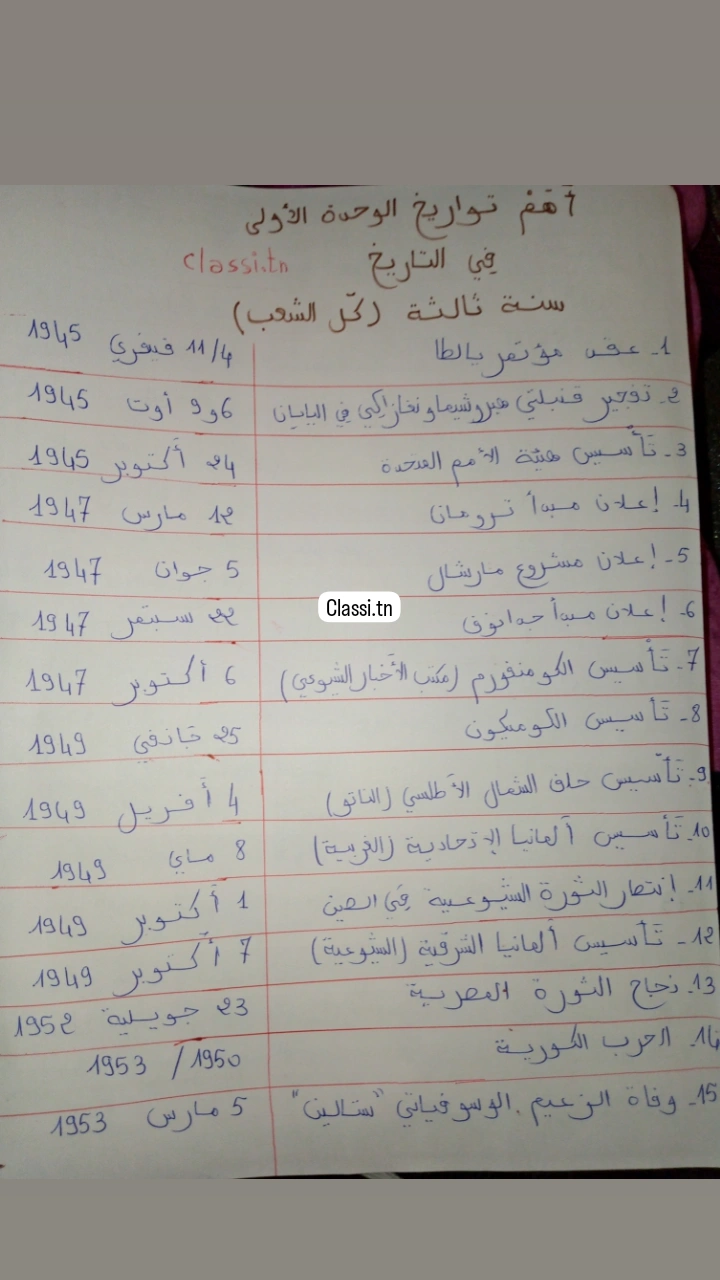 أهم تواريخ الوحدة الأولى
في التاريخ classi.tn
سنة ثالثة (كل الشعب)
1- عقد مؤتمر يالطا 11/4 فيفري 1945
2- تفجير قنبلتي هيروشيما ونغازاكي في اليابان 6 و 9 أوت 1945
3- تأسيس هيئة الأمم المتحدة 24 أكتوبر 1945
4- إعلان مبدأ ترومان 12 مارس 1947
5- إعلان مشروع مارشال 5 جوان 1947
Classi.tn
6- إعلان مبدأ جدانوف 22 سبتمر 1947
7- تأسيس الكومنفورم (مكتب الأخبار الشيوعي) 6 أكتوبر 1947
8- تأسيس الكوميكون 25 جانفي 1949
9- تأسيس حلف الشمال الأطلسي (الناتو) 4 أفريل 1949
10- تأسيس ألمانيا الإتحادية (الغربية) 8 ماي 1949
11- إنتصار الثورة الشيوعية في الصين 1 أكتوبر 1949
12- تأسيس ألمانيا الشرقية (الشيوعية) 7 أكتوبر 1949
13- نجاح الثورة المصرية 23 جويلية 1952
14- الحرب الكورية 1950 / 1953
15- وفاة الزعيم الوسوفياتي "ستالين" 5 مارس 1953